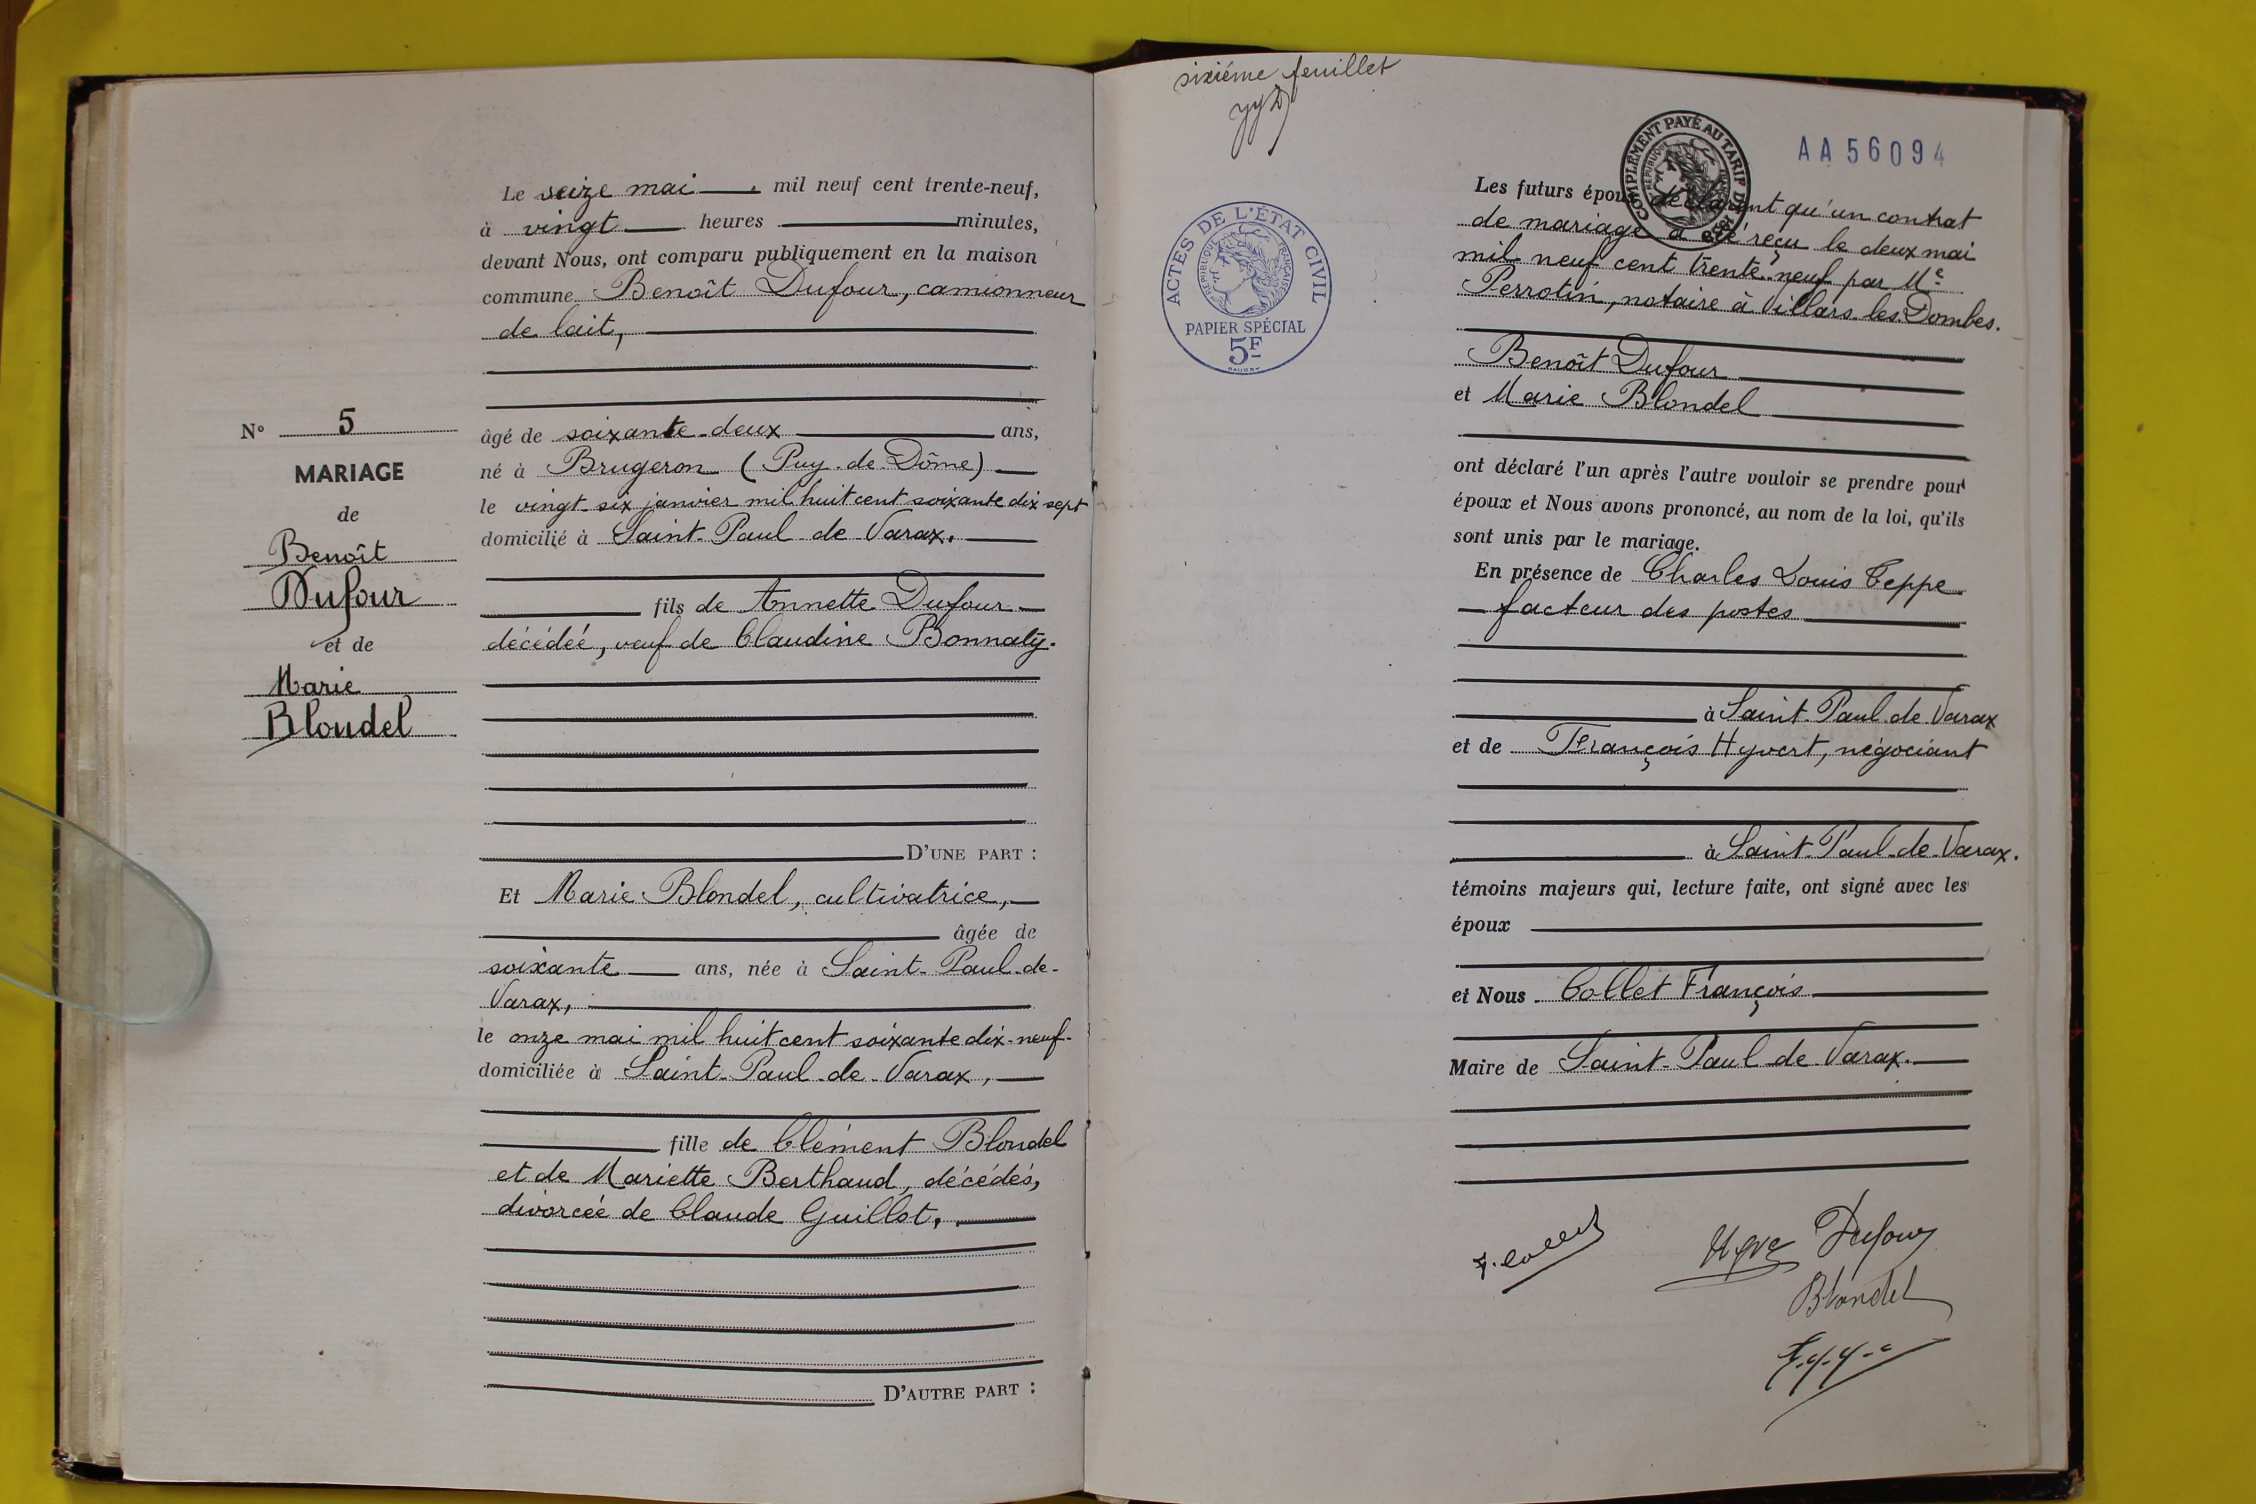 Le seize mai mil neuf cent trente-neuf,
à vingt heures minutes,
devant Nous, ont comparu publiquement en la maison
commune Benoît Dufour, camionneur
de lait,
âgé de soixante-deux ans,
né à Brugeron (Puy-de-Dôme)
le vingt-six janvier mil huit cent soixante dix sept
domicilié à Saint-Paul de Varax.
fils de Annette Dufour
décédée, veuf de Claudine Bonnaty.
D'UNE PART :
Et Marie Blondel, cultivatrice,
âgée de
soixante ans, née à Saint-Paul-de-
Varax,
le onze mai mil huit cent soixante dix-neuf
domiciliée à Saint-Paul-de-Varax,
fille de Clément Blondel
et de Mariette Berthaud, décédés,
divorcée de Claude Guillot.
D'AUTRE PART :
N° 5
MARIAGE
de
Benoît
Dufour
et de
Marie
Blondel
sixième feuillet
ACTES DE L'ÉTAT CIVIL
RÉPUBLIQUE FRANÇAISE
PAPIER SPÉCIAL
5F
COMPLÉMENT PAYÉ AU TARIF DE
RÉPUBLIQUE
AA56094
Les futurs époux déclarent qu'un contrat
de mariage a été reçu le deux mai
mil neuf cent trente-neuf par Me
Perrotin, notaire à Villars-les-Dombes.
Benoît Dufour
et Marie Blondel
ont déclaré l'un après l'autre vouloir se prendre pour
époux et Nous avons prononcé, au nom de la loi, qu'ils
sont unis par le mariage.
En présence de Charles Louis Teppe
facteur des postes
à Saint-Paul-de-Varax
et de François Hyvert, négociant
à Saint-Paul-de-Varax.
témoins majeurs qui, lecture faite, ont signé avec les
époux
et Nous Collet François
Maire de Saint-Paul-de-Varax.
F. Collet
Dufour
Blondel